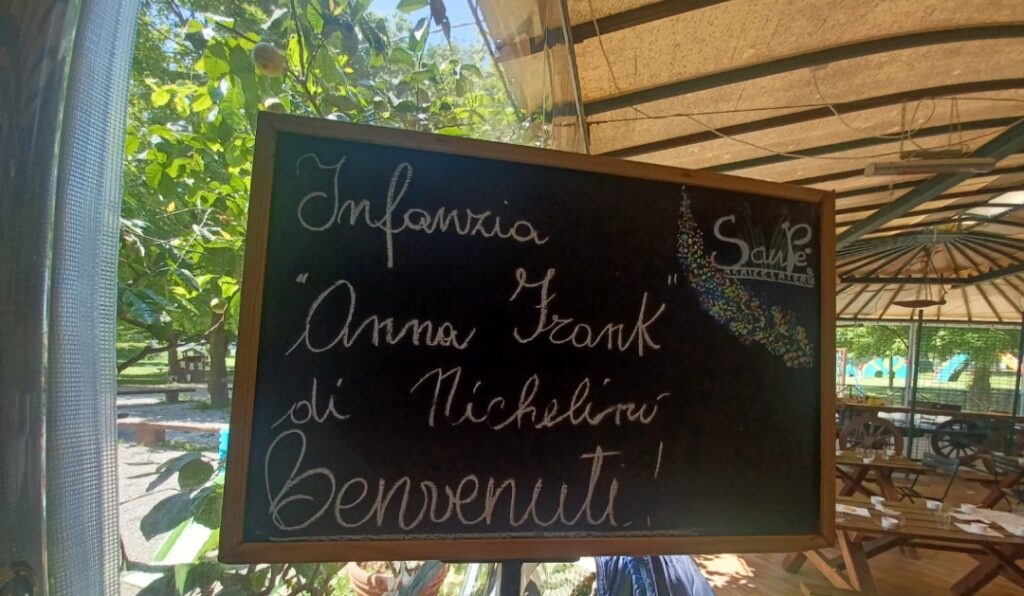 Infanzia
"Anna Frank"
di Nichelino
Benvenuti!
SanPé
AGRIGELATERIA